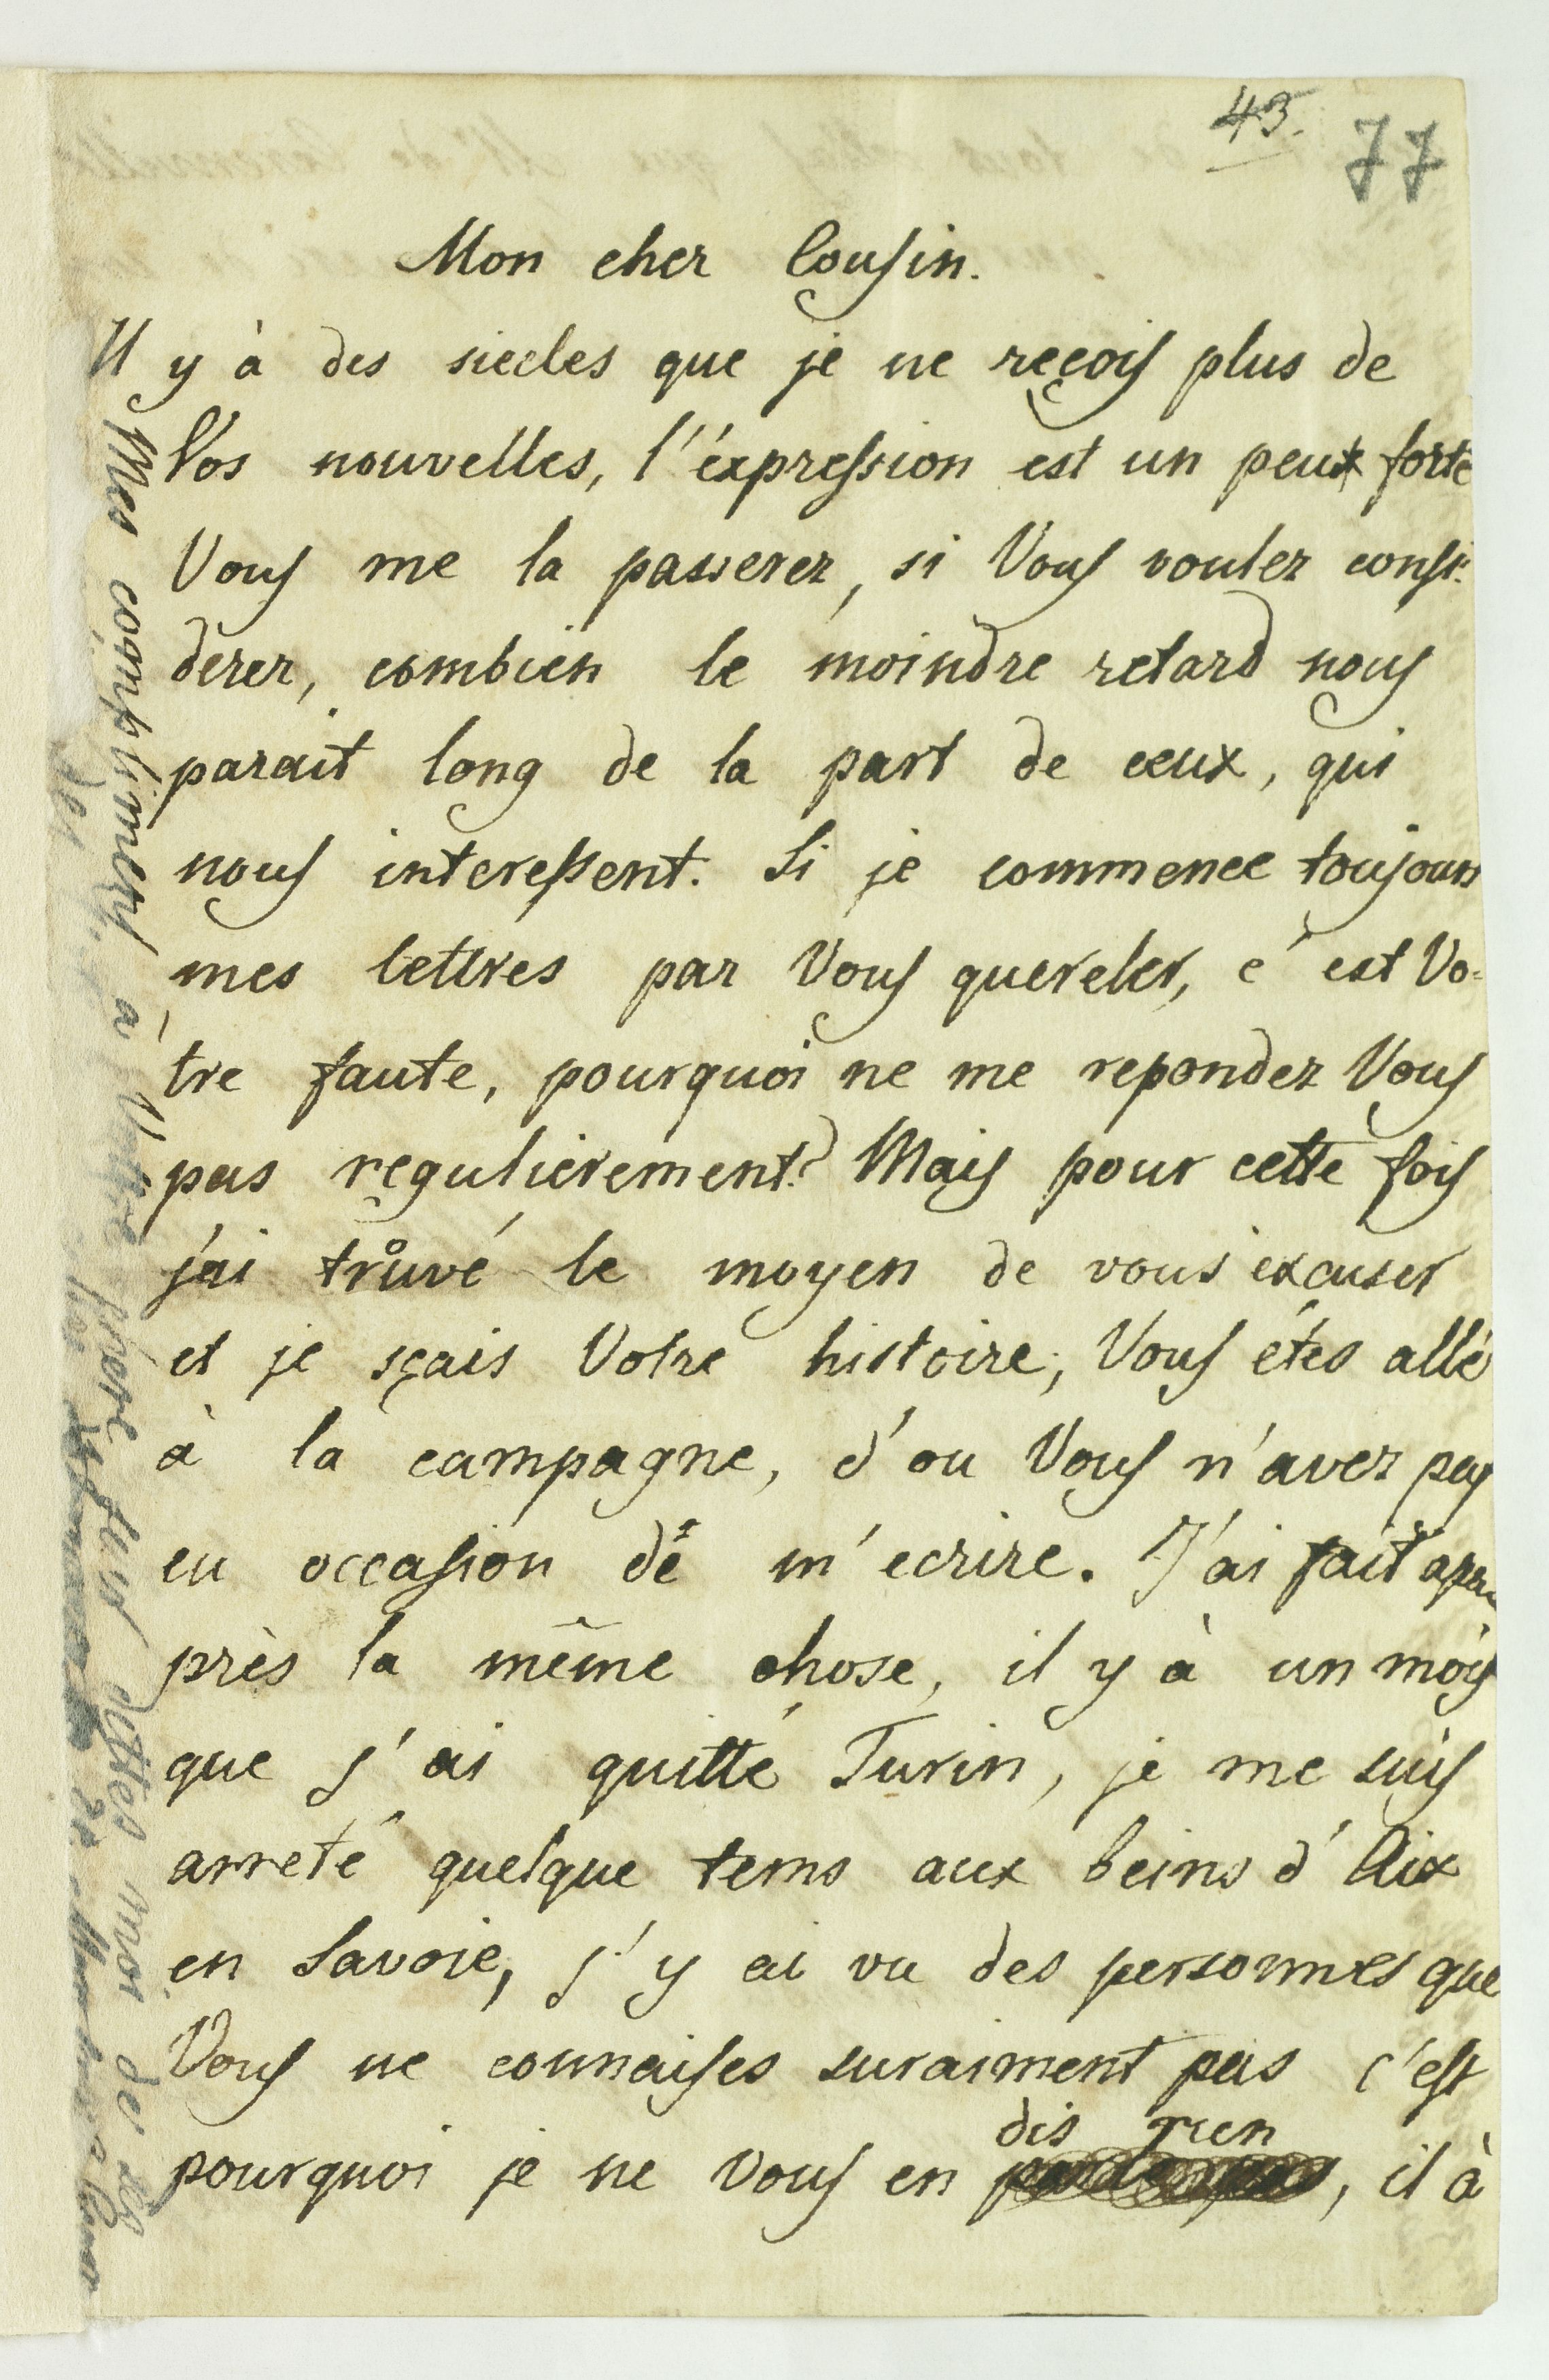 43. 77
Mon cher Cousin.
Il y à des siecles que je ne reçois plus de
Vos nouvelles, l'éxpression est un peux forte
Vous me la passerez, si Vous voulez consi-
derer, combien le moindre retard nous
parait long de la part de ceux, qui
nous interessent. Si je commence toujours
mes lettres par Vous quereler, c'est Vo-
tre faute, pourquoi ne me repondez Vous
pas regulierement? Mais pour cette fois
j'ai truvé le moyen de vous excuser
et je sçais Votre histoire, Vous étes allé
à la campagne, d'ou Vous n'avez pas
eu occasion de m'ecrire. J'ai fait
près la même chose, il y à un mois
que j'ai quitté Turin, je me suis
arreté quelque tems aux beins d'Aix
en Savoie, j'y ai vu des personnes que
Vous ne connaises suraiment pas c'est
pourquoi je ne Vous en dis rien, il à
Mes complimens à Votre dittes moi de